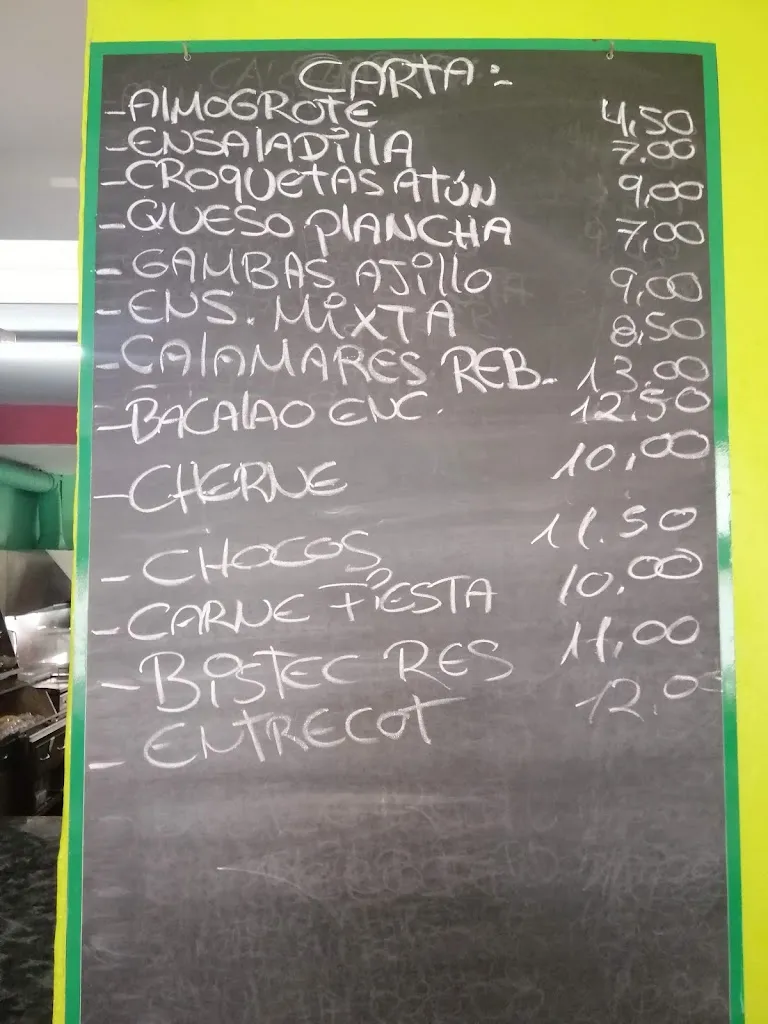 CARTA:
-AlMOGROTE 4,50
-ENSAlADillA 7.00
-CROQUETAS ATÚN 9,00
-QUESO PlANCHA 7,00
-GAMBAS AJillO 9,00
-ENS. MiXTA 8,50
-CAlAMARES REB. 13.00
-BACAlAO ENC. 12.50
-CHERNE 10,00
-CHOCOS 11.50
-CARNE FiESTA 10.00
-BiSTEC RES 11,00
-ENTRECOT 12.0